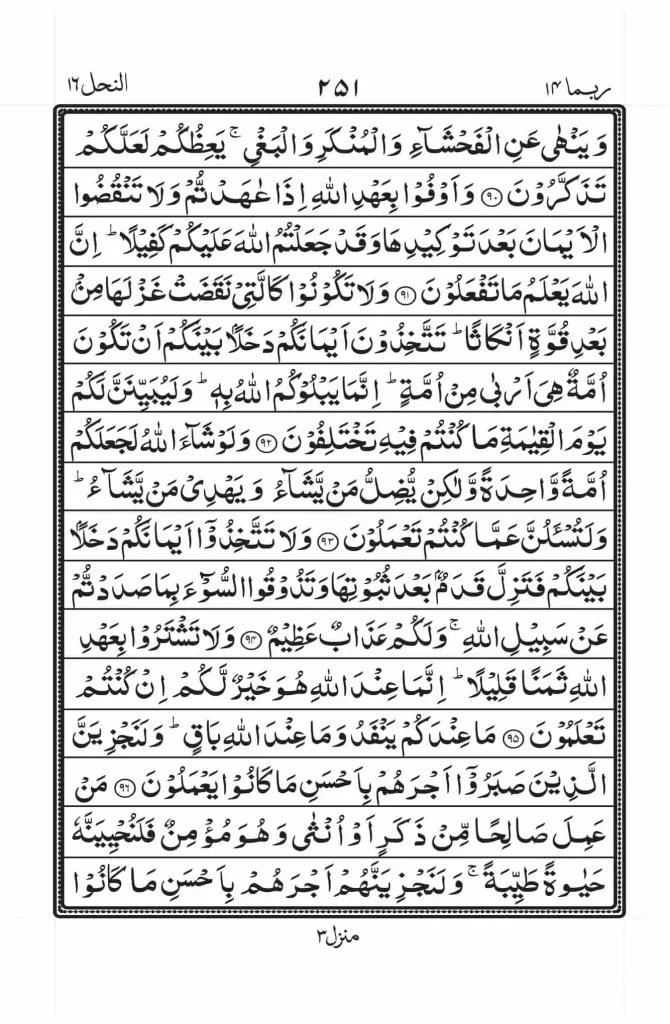 ربما ۱۴ ۲۵۱ النحل ۱۶
وَيَنۡهٰى عَنِ الۡفَحۡشَآءِ وَالۡمُنۡكَرِ وَالۡبَغۡىِ‌ۚ يَعِظُكُمۡ لَعَلَّكُمۡ
تَذَكَّرُوۡنَ ﴿۹۰﴾ وَاَوۡفُوۡا بِعَهۡدِ اللّٰهِ اِذَا عٰهَدْتُّمۡ وَلَا تَنۡقُضُوا
الۡاَيۡمَانَ بَعۡدَ تَوۡكِيۡدِهَا وَقَدۡ جَعَلۡتُمُ اللّٰهَ عَلَيۡكُمۡ كَفِيۡلًا‌ؕ اِنَّ
اللّٰهَ يَعۡلَمُ مَا تَفۡعَلُوۡنَ ﴿۹۱﴾ وَلَا تَكُوۡنُوۡا كَالَّتِىۡ نَقَضَتۡ غَزۡلَهَا مِنۡۢ
بَعۡدِ قُوَّةٍ اَنۡكَاثًا‌ؕ تَتَّخِذُوۡنَ اَيۡمَانَكُمۡ دَخَلًاۢ بَيۡنَكُمۡ اَنۡ تَكُوۡنَ
اُمَّةٌ هِىَ اَرۡبٰى مِنۡ اُمَّةٍ‌ؕ اِنَّمَا يَبۡلُوۡكُمُ اللّٰهُ بِهٖ‌ؕ وَلَيُبَيِّنَنَّ لَكُمۡ
يَوۡمَ الۡقِيٰمَةِ مَا كُنۡتُمۡ فِيۡهِ تَخۡتَلِفُوۡنَ ﴿۹۲﴾ وَلَوۡ شَآءَ اللّٰهُ لَجَعَلَكُمۡ
اُمَّةً وَّاحِدَةً وَّلٰـكِنۡ يُّضِلُّ مَنۡ يَّشَآءُ وَيَهۡدِىۡ مَنۡ يَّشَآءُ‌ؕ
وَلَـتُسۡـَٔـلُنَّ عَمَّا كُنۡتُمۡ تَعۡمَلُوۡنَ ﴿۹۳﴾ وَلَا تَتَّخِذُوۡۤا اَيۡمَانَكُمۡ دَخَلًاۢ
بَيۡنَكُمۡ فَتَزِلَّ قَدَمٌۢ بَعۡدَ ثُبُوۡتِهَا وَتَذُوۡقُوا السُّوۡۤءَ بِمَا صَدَدْتُّمۡ
عَنۡ سَبِيۡلِ اللّٰهِ‌ۚ وَلَكُمۡ عَذَابٌ عَظِيۡمٌ ﴿۹۴﴾ وَلَا تَشۡتَرُوۡا بِعَهۡدِ
اللّٰهِ ثَمَنًا قَلِيۡلًا‌ؕ اِنَّمَا عِنۡدَ اللّٰهِ هُوَ خَيۡرٌ لَّكُمۡ اِنۡ كُنۡتُمۡ
تَعۡلَمُوۡنَ ﴿۹۵﴾ مَا عِنۡدَكُمۡ يَنۡفَدُ‌ وَمَا عِنۡدَ اللّٰهِ بَاقٍؕ وَلَـنَجۡزِيَنَّ
الَّذِيۡنَ صَبَرُوۡۤا اَجۡرَهُمۡ بِاَحۡسَنِ مَا كَانُوۡا يَعۡمَلُوۡنَ ﴿۹۶﴾ مَنۡ
عَمِلَ صَالِحًا مِّنۡ ذَكَرٍ اَوۡ اُنۡثٰى وَهُوَ مُؤۡمِنٌ فَلَـنُحۡيِيَنَّهٗ
حَيٰوةً طَيِّبَةً‌ۚ وَلَـنَجۡزِيَـنَّهُمۡ اَجۡرَهُمۡ بِاَحۡسَنِ مَا كَانُوۡا
منزل ۳